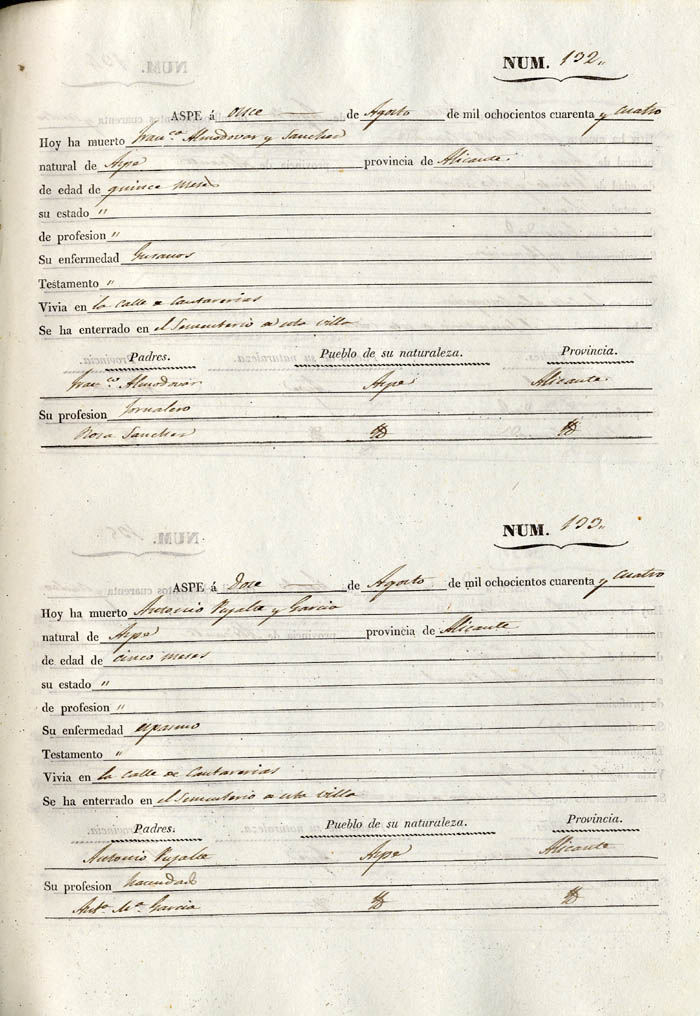 NUM. 132,,
ASPE á once de Agosto de mil ochocientos cuarenta y cuatro
Hoy ha muerto Franco Almodovar y Sanchez
natural de Aspe provincia de Alicante
de edad de quince meses
su estado "
de profesion "
Su enfermedad Gusanos
Testamento "
Vivia en la calle de Cantarerias
Se ha enterrado en el Sementerio de esta villa
Padres. Pueblo de su naturaleza. Provincia.
Franco Almodovar Aspe Alicante
Su profesion Jornalero
Rosa Sanchez
NUM. 133,,
ASPE á Doce de Agosto de mil ochocientos cuarenta y cuatro
Hoy ha muerto Antonio Pujalte y Garcia
natural de Aspe provincia de Alicante
de edad de cinco meses
su estado "
de profesion "
Su enfermedad espasmo
Testamento "
Vivia en la calle de Cantarerias
Se ha enterrado en el Sementerio de esta villa
Padres. Pueblo de su naturaleza. Provincia.
Antonio Pujalte Aspe Alicante
Su profesion
Anta Ma Garcia